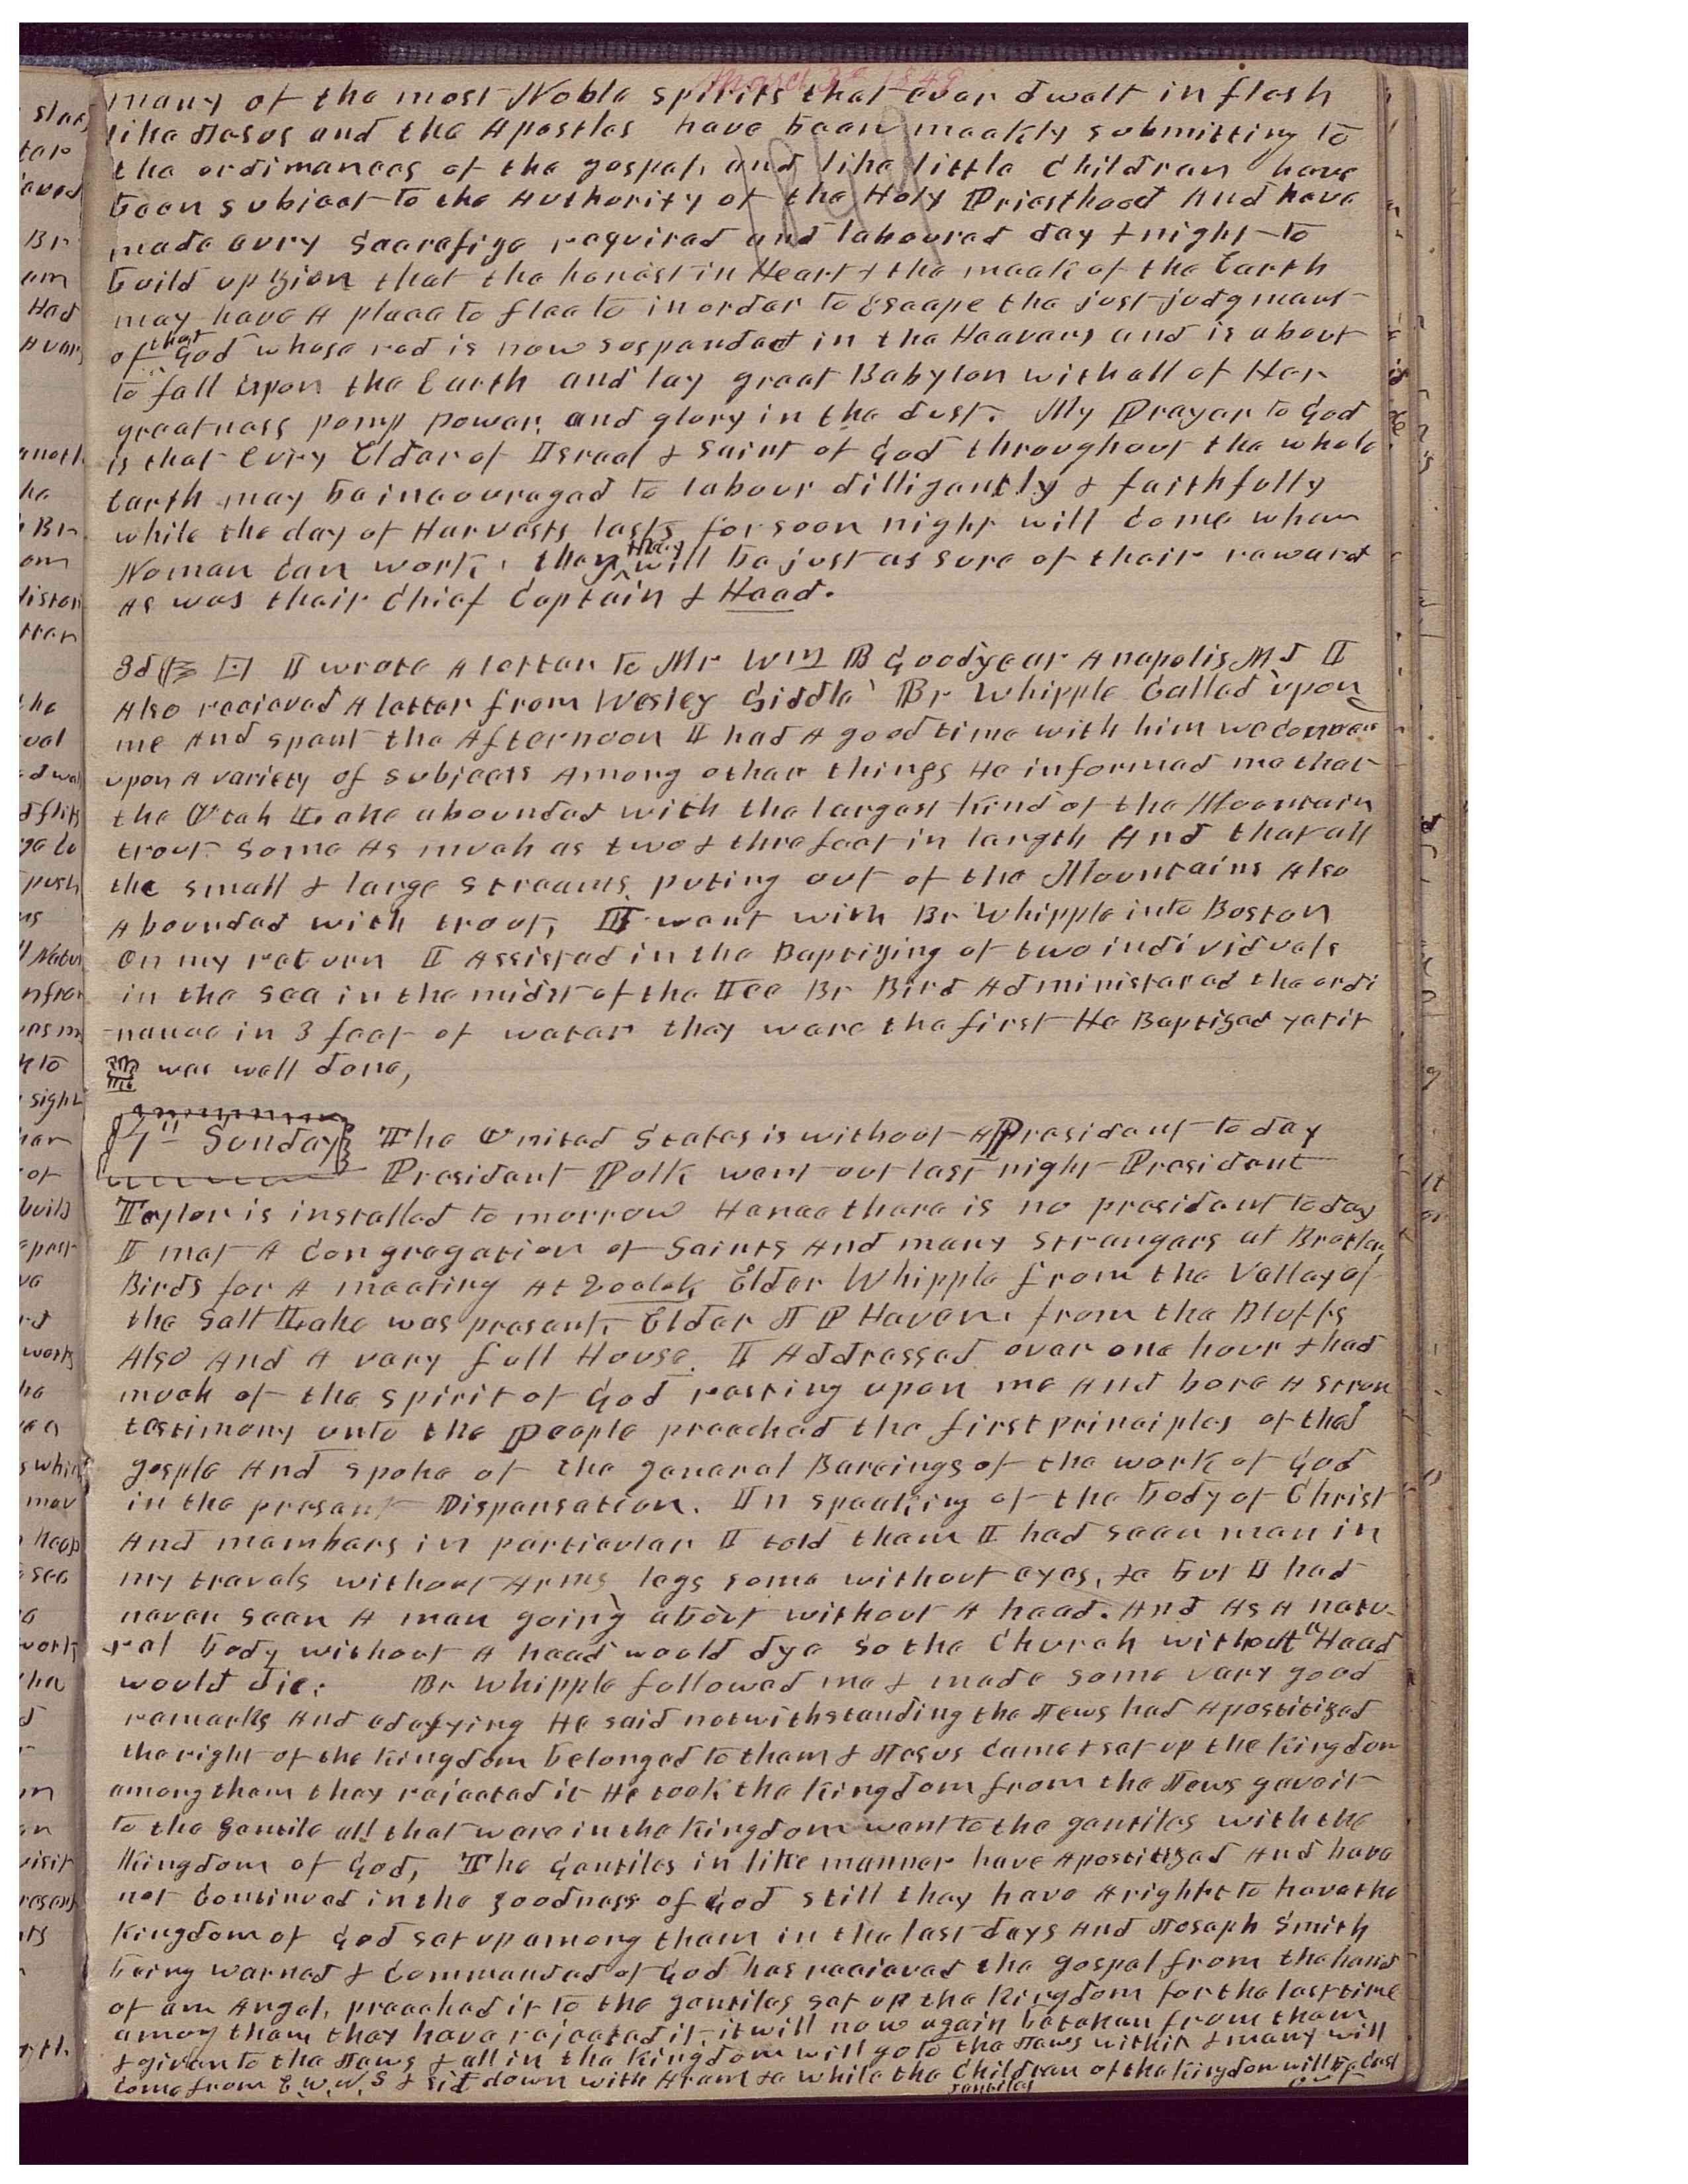 March 3d 1849
1849
many of the most Noble spirits that ever dwelt in flesh
like Jesus and the Apostles have been meekly submitting to
the ordimances of the gospel, and like little Children have
been subject to the Authority of the Holy Priesthood And have
made evry Saccrefize required and laboured day & night to
build up Zion that the honest in Heart & the meek of the Earth
may have A place to flee to in order to Escape the just judgment
of that God whose rod is now suspended in the Heavens and is about
to fall upon the Earth and lay great Babylon with all of Her
greatness pomp power, and glory in the dust. My Prayer to God
is that Evry Elder of Israel & Saint of God throughout the whole
Earth may be incouraged to labour dilligently & faithfully
while the day of Harvests lasts for soon night will Come when
No man Can work, then they will be just as sure of their reward
As was their Chief Captain & Head.
3d I wrote A letter to Mr Wm B Goodyear Anapolis Md I
Also recieved A letter from Wesley Siddle Br Whipple Called upon
me And spent the Afternoon I had A good time with him we
upon A variety of subjects Among other things He informed me that
the Utah Lake abounded with the largest kind of the Mountain
trout some As much as two & thre feet in length And that all
the small & large streams puting out of the Mountains Also
Abounded with trout, I went with Br Whipple into Boston
On my return I Assisted in the Baptizing of two individuals
in the sea in the midst of the Ice Br Bird Administered the ordi
nance in 3 feet of water they were the first He Baptized yet it
was well done,
4th Sunday The United States is without A President to day
President Polk went out last night President
Taylor is installed to morrow Hence there is no president to day
I met A Congregation of Saints And many strangers at Brother
Birds for A meeting At 2 oclok Elder Whipple from the Valley of
the Salt Lake was present, Elder J P Haven from the Bluffs
Also And A very full House. I Addressed over one hour & had
much of the spirit of God resting upon me And bore A stron
testimony unto the People preached the first principles of the
gosple And spoke of the general Bareings of the work of God
in the present Dispensation. In speaking of the body of Christ
And members in particular I told them I had seen men in
my travels without Arms legs some without eyes, &c but I had
never seen A man going about without A head. And As A natu-
ral body without A head would dye so the Church without a Head
would die: Br Whipple followed me & made some very good
remarks And edefying He said notwithstanding the Jews had Apostitized
the right of the kingdom belonged to them & Jesus came & set up the kingdom
among them they rejected it He took the kingdom from the Jews gave it
to the Gentile all that were in the kingdom went to the gentiles with the
Kingdom of God, The Gentiles in like manner have Apostitized And have
not Continued in the goodness of God still they have A right to have the
kingdom of God set up among them in the last days And Joseph Smith
being warned & Commanded of God has recieved the gospel from the hand
of am Angel, preached it to the gentiles set up the kingdom for the last time
among them they have rejected it, it will now again be taken from them
& given to the Jews & all in the kingdom will go to the Jews with it & many will
Come from E, W, N, S & sit down with Abram &c while the Children of the kingdom will be Cast
gentiles out